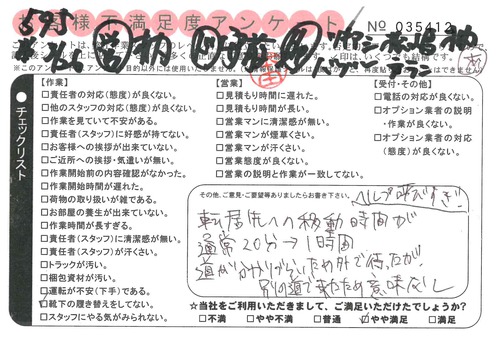 お客様不満足度アンケート
No 035412
チェックリスト
【作業】
□責任者の対応(態度)が良くない。
□他のスタッフの対応(態度)が良くない。
□作業を見ていて不安がある。
□責任者(スタッフ)に好感が持てない。
□お客様への挨拶が出来ていない。
□ご近所への挨拶・気遣いが無い。
□作業開始前の内容確認がなかった。
□作業開始時間が遅れた。
□荷物の取り扱いが雑である。
□お部屋の養生が出来ていない。
□作業時間が長すぎる。
□責任者(スタッフ)に清潔感が無い。
□責任者(スタッフ)が汗くさい。
□トラックが汚い。
□梱包資材が汚い。
□運転が不安(下手)である。
□靴下の履き替えをしてない。
□スタッフにやる気がみられない。
【営業】
□見積もり時間に遅れた。
□見積もり時間が長い。
□営業マンに清潔感が無い。
□営業マンが煙草くさい。
□営業マンが汗くさい。
□営業態度が良くない。
□営業の説明と作業が一致してない。
【受付・その他】
□電話の対応が良くない。
□オプション業者の説明・作業が良くない。
□オプション業者の対応(態度)が良くない。
その他、ご意見・ご要望等ありましたらお書き下さい。
ヘルプ呼びすぎ!
転居先への移動時間が
通常20分→1時間
道が分かりづらいため外で待ったが
別の道で来たため意味なし
☆当社をご利用いただきまして、ご満足いただけたでしょうか?
□不満 □やや不満 □普通 ☑やや満足 □満足